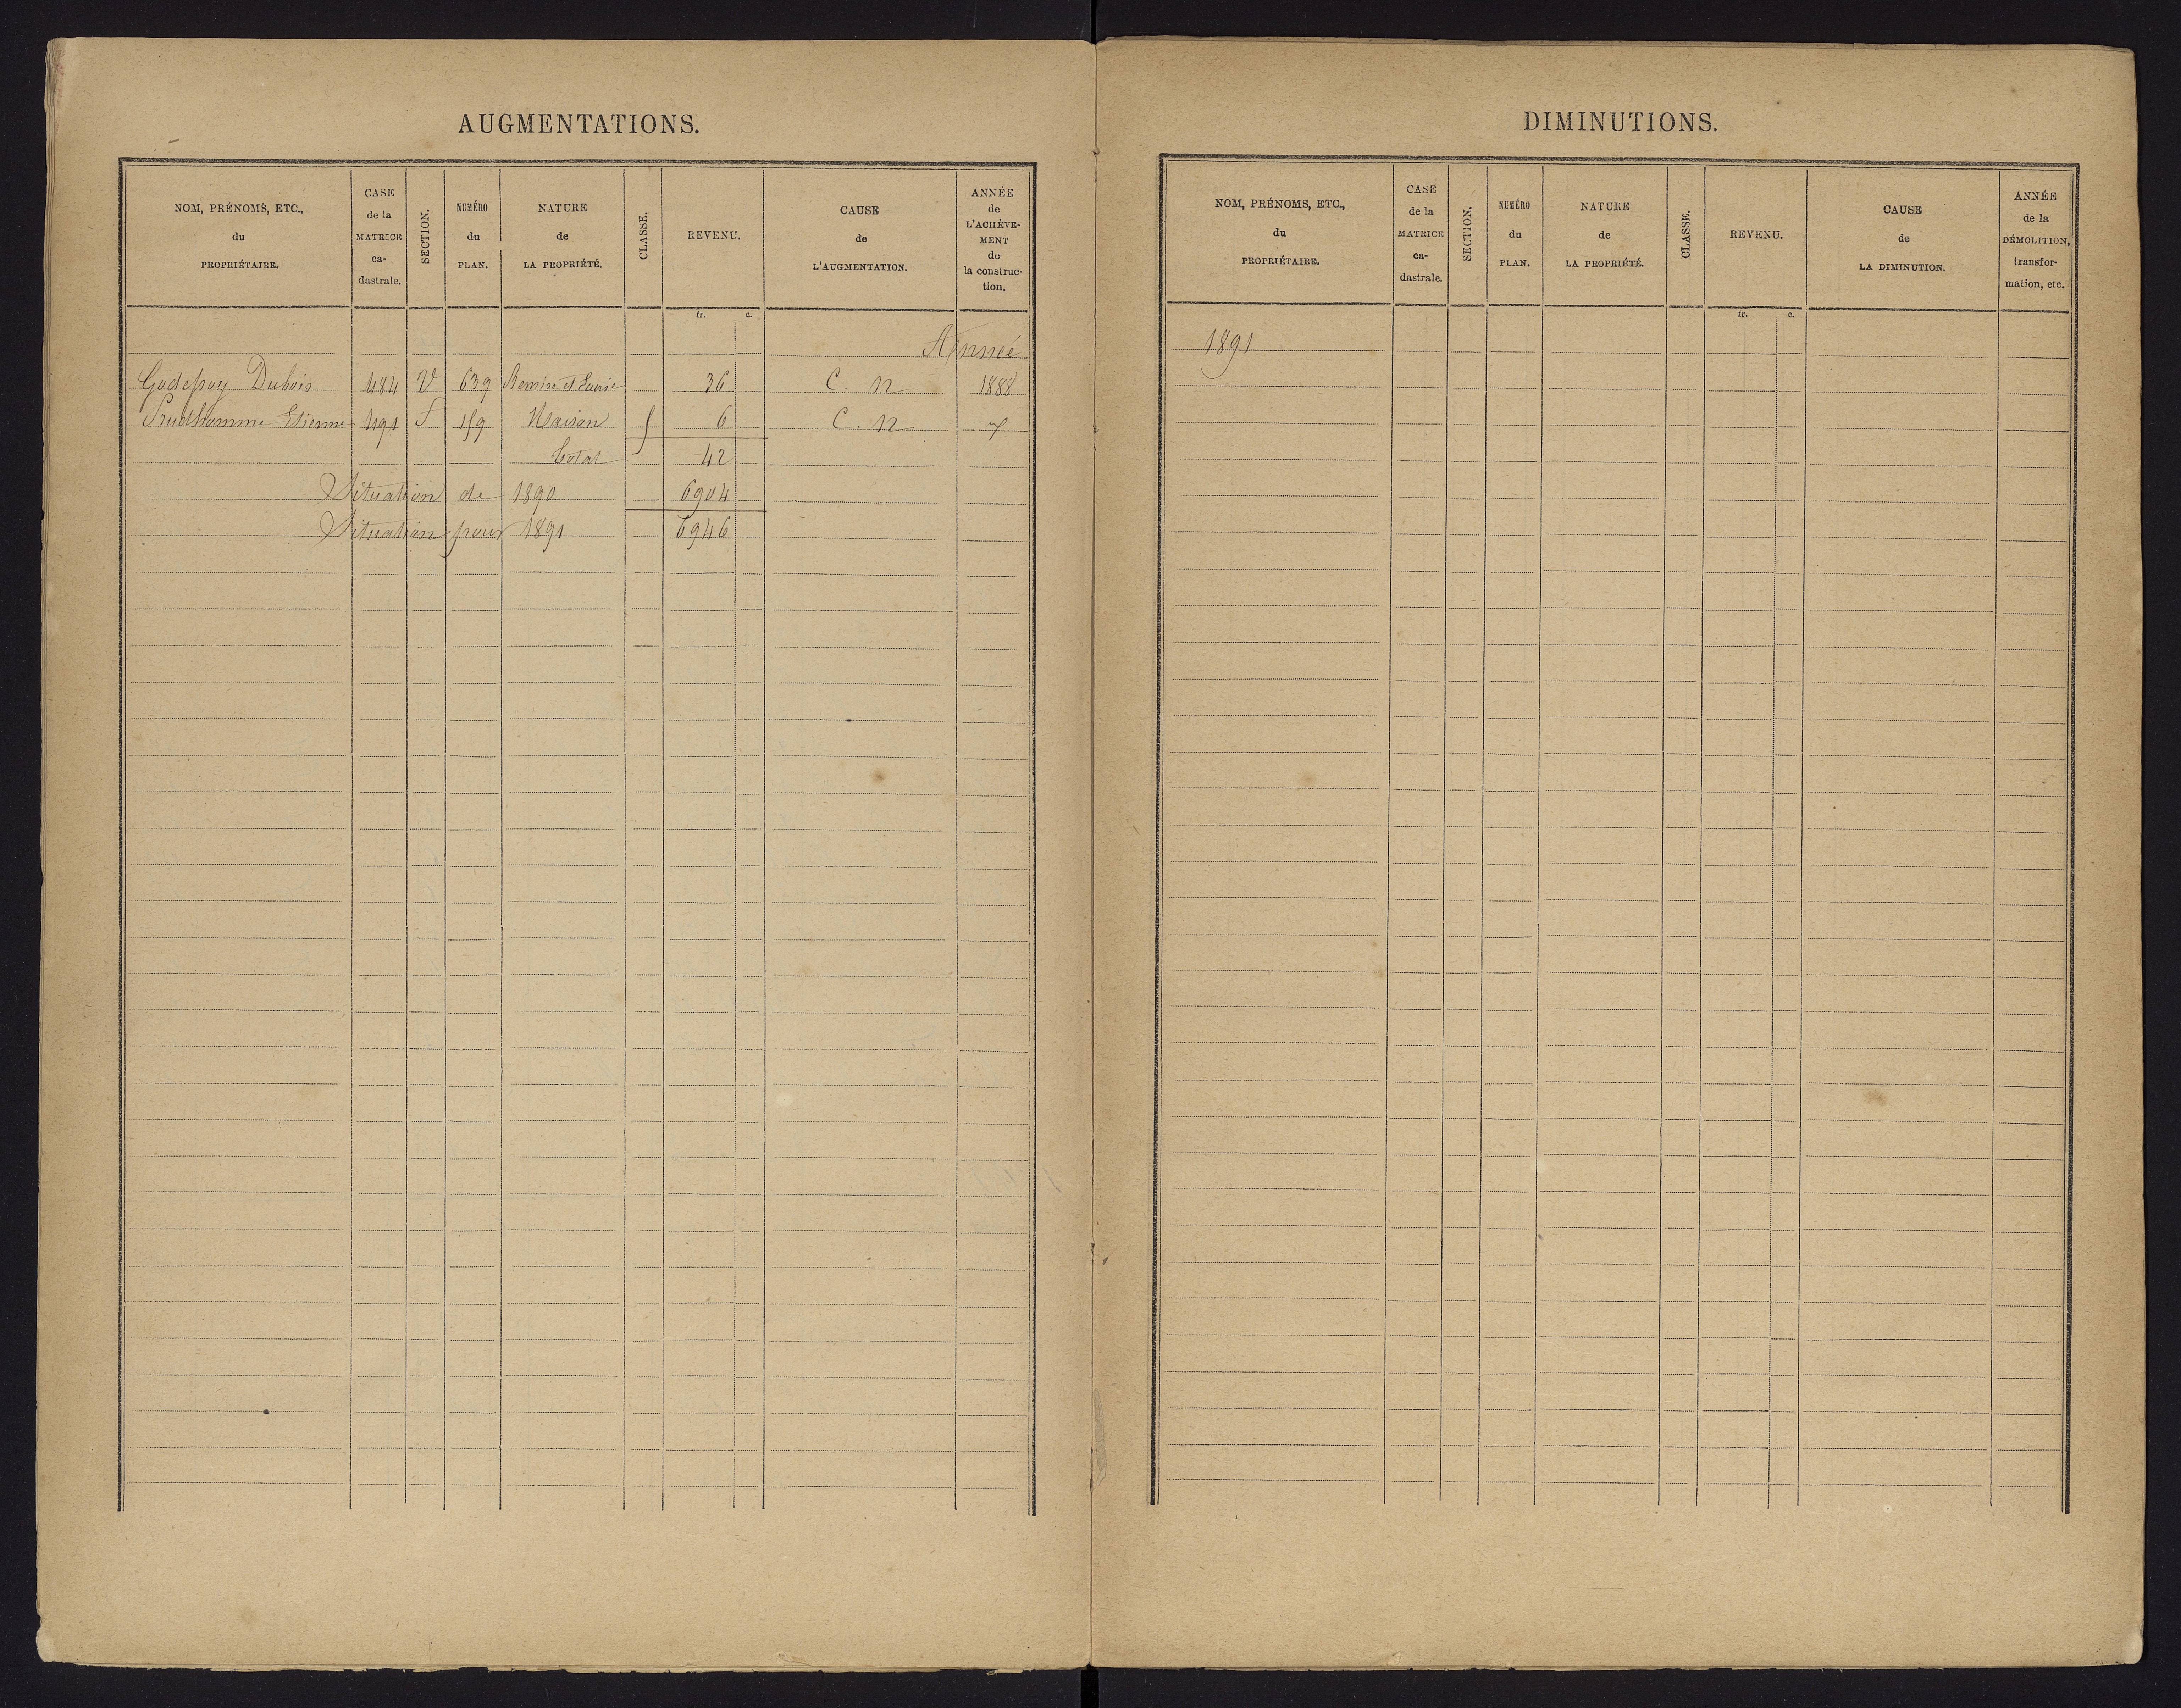 AUGMENTATIONS.
NOM, PRÉNOMS, ETC.,
du
PROPRIÉTAIRE.
CASE
de la
MATRICE
ca-
dastrale.
SECTION.
NUMÉRO
du
PLAN.
NATURE
de
LA PROPRIÉTÉ.
CLASSE.
REVENU.
CAUSE
de
L'AUGMENTATION.
ANNÉE
de
L'ACHÈVE-
MENT
de
la construc-
tion.
fr. c.
Année
Godefroy Dubois 484 V 639 Remise et Ecurie 36 C. n 1888
Prudhomme Etienne 491 159 Maison 5 6 C. n
Total 42
Situation de 1890 6904
Situation pour 1891 6946
DIMINUTIONS.
NOM, PRÉNOMS, ETC.,
du
PROPRIÉTAIRE.
CASE
de la
MATRICE
ca-
dastrale.
SECTION.
NUMÉRO
du
PLAN.
NATURE
de
LA PROPRIÉTÉ.
CLASSE.
REVENU.
CAUSE
de
LA DIMINUTION.
ANNÉE
de la
DÉMOLITION,
transfor-
mation, etc.
fr. c.
1891